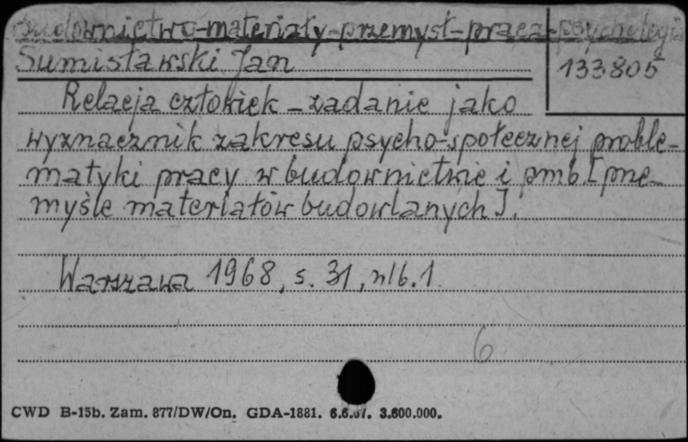 Budownictwo-materiały-przemysł-praca-psychologia
Sumisławski Jan
133805
Relacja człowiek - zadanie jako
wyznacznik zakresu psycho-społecznej proble-
matyki pracy w budownictwie i pmb [prze-
myśle materiałów budowlanych].
Warszawa 1968, s. 31, nlb. 1
6
CWD B-15b. Zam. 877/DW/On. GDA-1881. 6.6.67. 3.600.000.